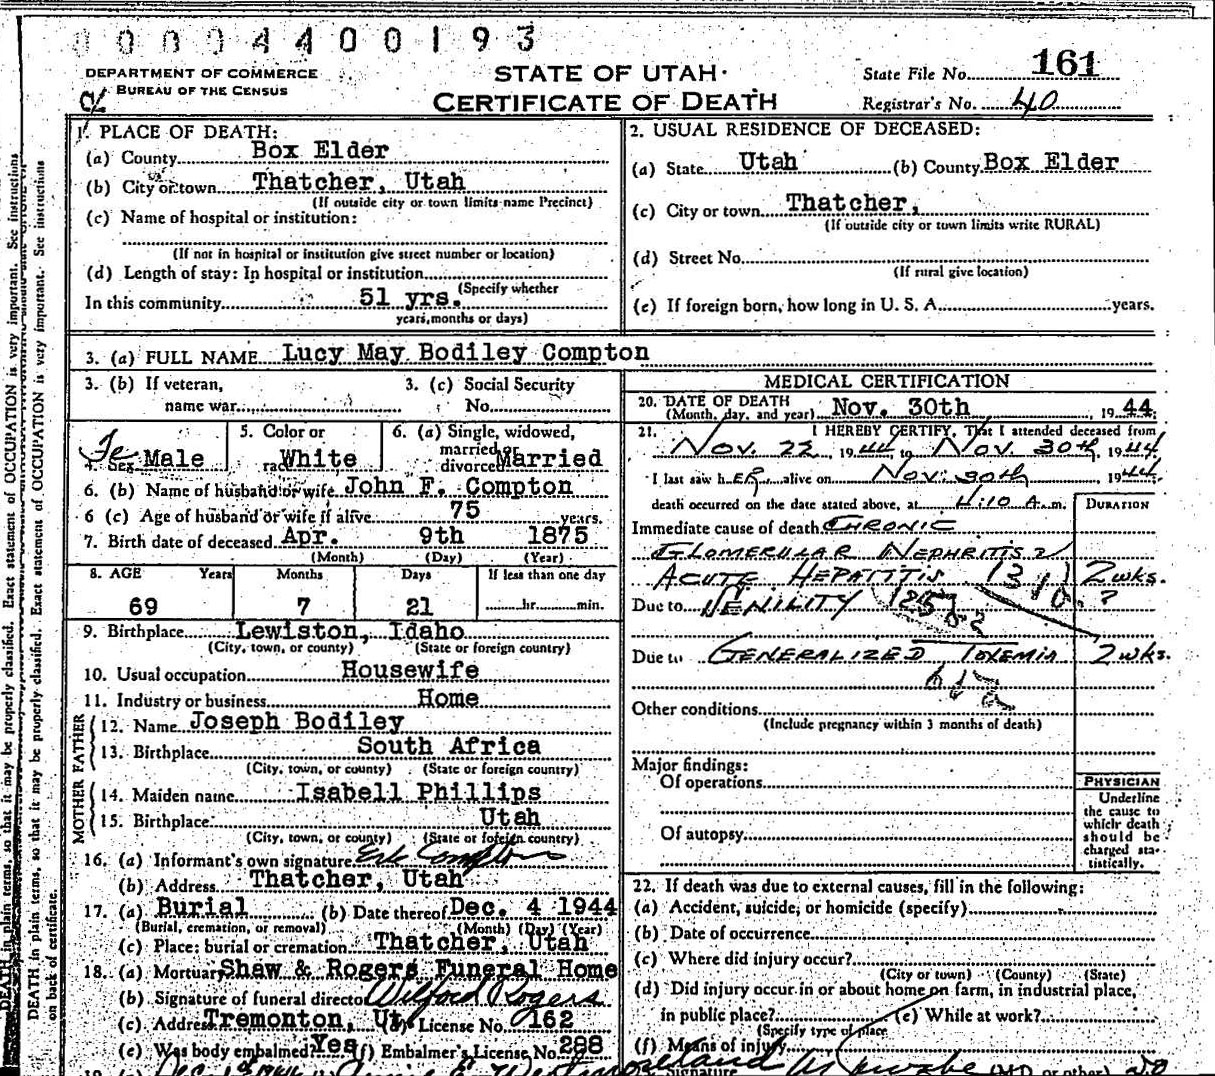 00004400193
DEPARTMENT OF COMMERCE
BUREAU OF THE CENSUS
STATE OF UTAH
CERTIFICATE OF DEATH
State File No. 161
Registrar's No. 40
1. PLACE OF DEATH:
(a) County Box Elder
(b) City or town Thatcher, Utah
(If outside city or town limits name Precinct)
(c) Name of hospital or institution:
(If not in hospital or institution give street number or location)
(d) Length of stay: In hospital or institution
(Specify whether
In this community 51 yrs.
years, months or days)
2. USUAL RESIDENCE OF DECEASED:
(a) State Utah (b) County Box Elder
(c) City or town Thatcher,
(If outside city or town limits write RURAL)
(d) Street No.
(If rural give location)
(e) If foreign born, how long in U. S. A. years.
3. (a) FULL NAME Lucy May Bodiley Compton
3. (b) If veteran,
name war
3. (c) Social Security
No.
4. Sex FeMale
5. Color or
race White
6. (a) Single, widowed,
married or
divorced Married
6. (b) Name of husband or wife John F. Compton
6 (c) Age of husband or wife if alive 75 years.
7. Birth date of deceased Apr. 9th 1875
(Month) (Day) (Year)
8. AGE Years Months Days If less than one day
69 7 21 hr. min.
9. Birthplace Lewiston, Idaho
(City, town, or county) (State or foreign country)
10. Usual occupation Housewife
11. Industry or business Home
FATHER
12. Name Joseph Bodiley
13. Birthplace South Africa
(City, town, or county) (State or foreign country)
MOTHER
14. Maiden name Isabell Phillips
15. Birthplace Utah
(City, town, or county) (State or foreign country)
16. (a) Informant's own signature Compton
(b) Address Thatcher, Utah
17. (a) Burial (b) Date thereof Dec. 4 1944
(Burial, cremation, or removal) (Month) (Day) (Year)
(c) Place: burial or cremation Thatcher, Utah
18. (a) Mortuary Shaw & Rogers Funeral Home
(b) Signature of funeral director Wilford Rogers
(c) Address Tremonton, Ut. (d) License No. 162
(e) Was body embalmed? Yes (f) Embalmer's License No. 288
MEDICAL CERTIFICATION
20. DATE OF DEATH
(Month, day, and year) Nov. 30th, 1944
21. I HEREBY CERTIFY, That I attended deceased from
Nov. 22, 1944 to Nov. 30th, 1944
I last saw her alive on Nov. 30th 1944
death occurred on the date stated above, at 4:10 A.m.
DURATION
Immediate cause of death CHRONIC
GLOMERULAR NEPHRITIS &
ACUTE HEPATITIS 2 wks.
131a.
Due to SENILITY ?
Due to GENERALIZED TOXEMIA 2 wks.
Other conditions
(Include pregnancy within 3 months of death)
Major findings:
Of operations
Of autopsy
PHYSICIAN
Underline
the cause to
which death
should be
charged sta-
tistically.
22. If death was due to external causes, fill in the following:
(a) Accident, suicide, or homicide (specify)
(b) Date of occurrence
(c) Where did injury occur?
(City or town) (County) (State)
(d) Did injury occur in or about home on farm, in industrial place,
in public place? (e) While at work?
(Specify type of place
(f) Means of injury
DEATH in plain terms, so that it may be properly classified. Exact statement of OCCUPATION is very important. See instructions
on back of certificate.